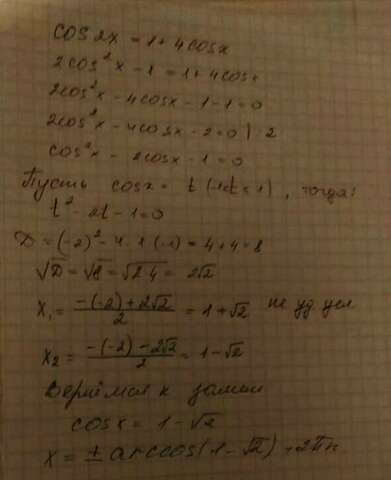 cos2x = 1 + 4cosx
2cos²x - 1 = 1 + 4cosx
2cos²x - 4cosx - 1 - 1 = 0
2cos²x - 4cosx - 2 = 0 | : 2
cos²x - 2cosx - 1 = 0
Пусть cosx = t (-1≤t≤1), тогда:
t² - 2t - 1 = 0
D = (-2)² - 4·1(-1) = 4+4 = 8
√D = √8 = √2·4 = 2√2
x₁ = -(-2)+2√2 / 2 = 1+√2 не уд. усл
x₂ = -(-2)-2√2 / 2 = 1-√2
Вернёмся к замене
cosx = 1-√2
x = ± arccos(1-√2)+2πn